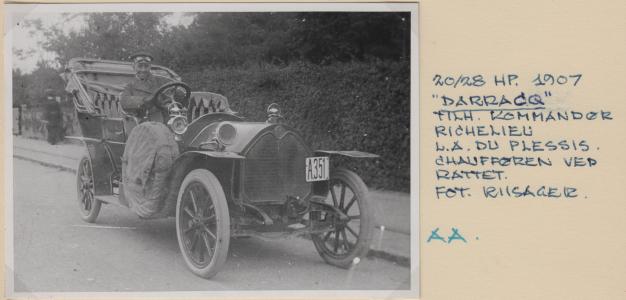 A351
20/28 HP. 1907
"DARRACQ"
TILH. KOMMANDØR
RICHELIEU
L.A. DU PLESSIS.
CHAUFFØREN VED
RATTET.
FOT. RIISAGER.
AA.